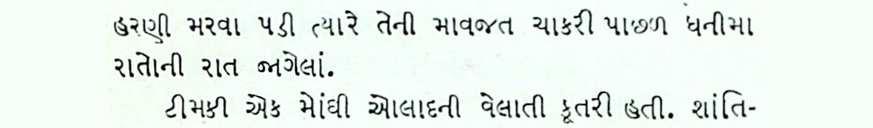 હરણી મરવા પડી ત્યારે તેની માવજત ચાકરી પાછળ ધનીમા
રાતોની રાત જાગેલાં.
ટીમકી એક મોંઘી ઓલાદની વેલાતી કૂતરી હતી. શાંતિ-